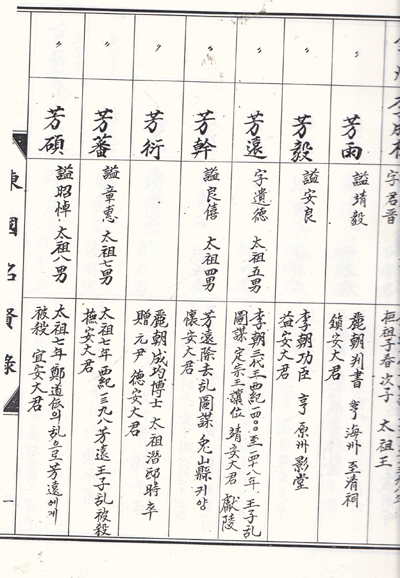 字君晋
桓祖子春次子 太祖王
〃
芳雨
諡靖毅
麗朝判書 享海州至清祠
鎮安大君
〃
芳毅
諡安良
李朝功臣 享原州影堂
益安大君
〃
芳遠
字遺德 太祖五男
李朝三代王西紀一四〇〇至一四十八年 王子乱
圖謀定宗王讓位 靖安大君 獻陵
〃
芳幹
諡良僖 太祖四男
芳遠除去乱圖謀 兎山縣귀양
懷安大君
〃
芳衍
麗朝成均博士 太祖潜邸時卒
贈元尹 德安大君
〃
芳蕃
諡章惠 太祖七男
太祖七年 西紀一三九八芳遠 王子乱被殺
撫安大君
〃
芳碩
諡昭悼 太祖八男
太祖七年 鄭道伝의乱으로芳遠에게
被殺 宜安大君
東國名賢錄
一